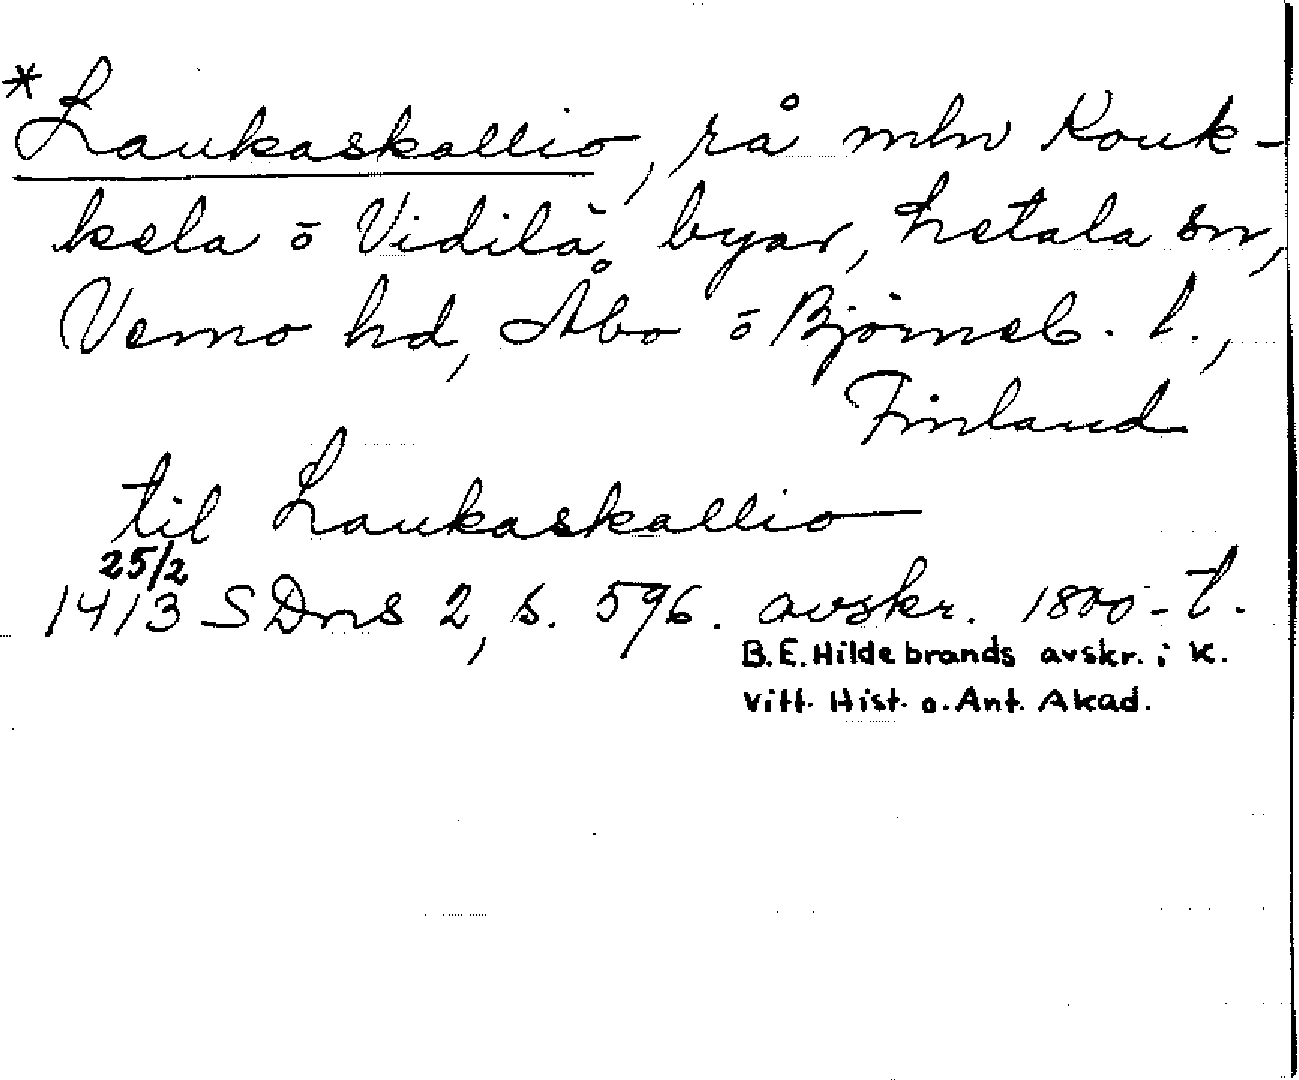 *Laukaskallio, rå mln Kouk-
kela ō Vidilä byar, Letala sn,
Vemo hd, Åbo ō Björneb. l.,
Finland
til Laukaskallio
25/2
1413 SDns 2, s. 596. avskr. 1800-t.
B.E. Hildebrands avskr. i K.
Vitt. Hist. o. Ant. Akad.